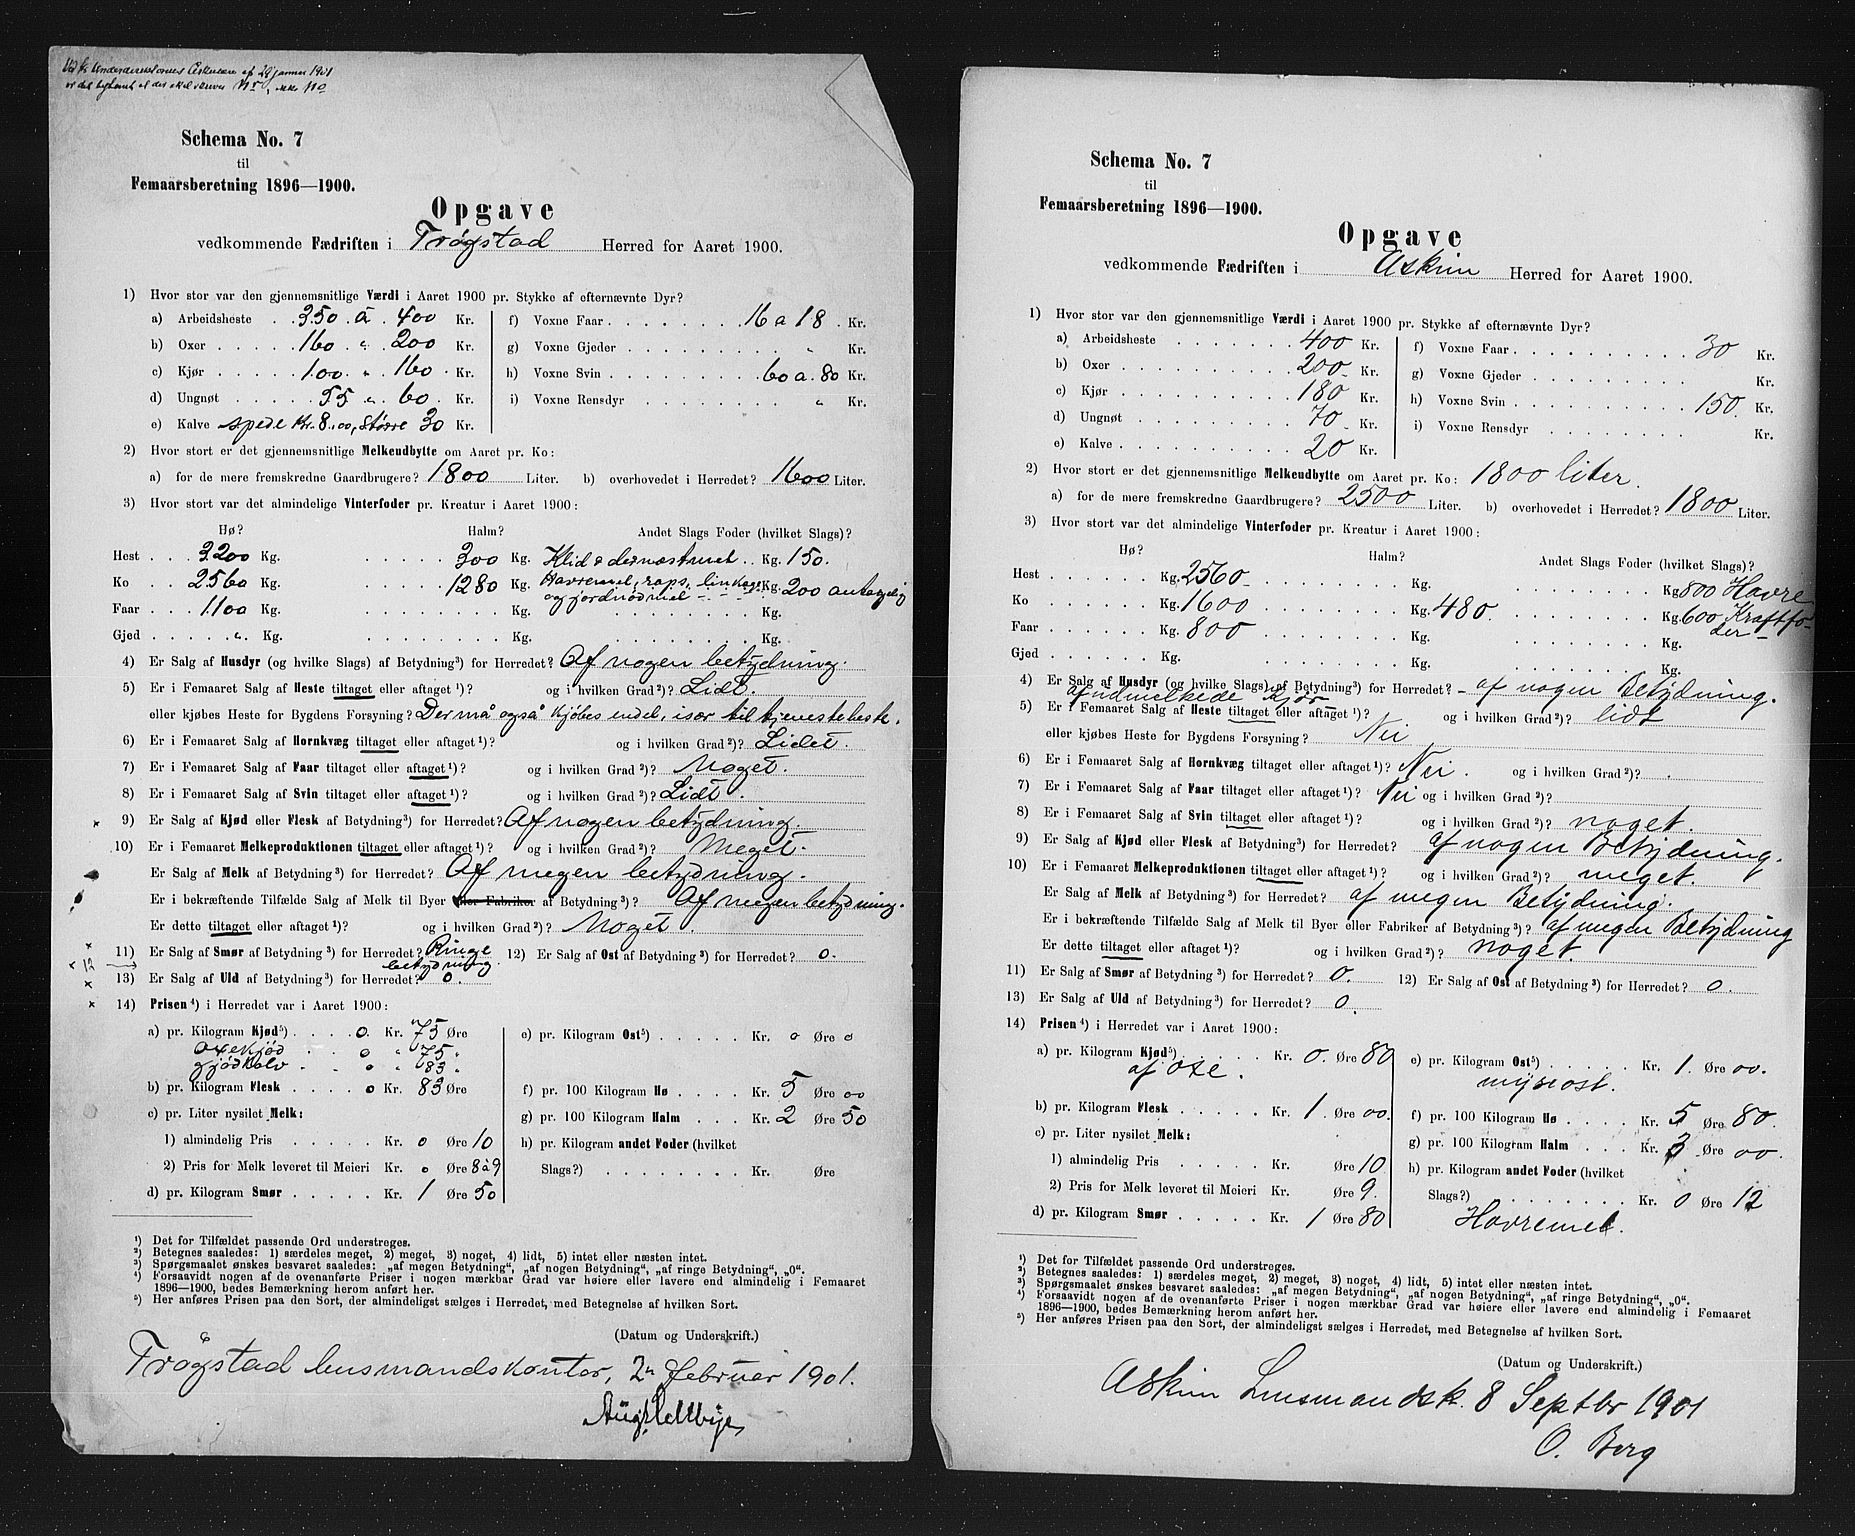 Schema No. 7
til
Femaarsberetning 1896—1900.
Opgave
vedkommende Fædriften i Trøgstad Herred for Aaret 1900.
1) Hvor stor var den gjennemsnitlige Værdi i Aaret 1900 pr. Stykke af efternævnte Dyr?
a) Arbeidsheste 350 à 400 Kr.
b) Oxer 160 " 200 Kr.
c) Kjør 100 " 160 Kr.
d) Ungnøt 55 " 60 Kr.
e) Kalve spede Kr. 8.00, Større 30 Kr.
f) Voxne Faar 16 a 18 Kr.
g) Voxne Gjeder " Kr.
h) Voxne Svin 60 a 80 Kr.
i) Voxne Rensdyr " Kr.
2) Hvor stort er det gjennemsnitlige Melkeudbytte om Aaret pr. Ko:
a) for de mere fremskredne Gaardbrugere? 1800 Liter. b) overhovedet i Herredet? 1600 Liter.
3) Hvor stort var det almindelige Vinterfoder pr. Kreatur i Aaret 1900:
Hø? Halm? Andet Slags Foder (hvilket Slags)?
Hest 3200 Kg. 300 Kg. Klid & Kg. 150.
Ko 2560 Kg. 1280 Kg. Havremel, raps, linkage Kg. 200 antagelig
Faar 1100 Kg. og jordnødmel Kg.
Gjed " Kg. Kg. Kg.
4) Er Salg af Husdyr (og hvilke Slags) af Betydning³) for Herredet? Af nogen betydning.
5) Er i Femaaret Salg af Heste tiltaget eller aftaget¹)? og i hvilken Grad²)? Lidt.
eller kjøbes Heste for Bygdens Forsyning? Der må også kjøbes endel, især til tjenesteheste.
6) Er i Femaaret Salg af Hornkvæg tiltaget eller aftaget¹)? og i hvilken Grad²)? Lidet.
7) Er i Femaaret Salg af Faar tiltaget eller aftaget¹)? og i hvilken Grad²)? Noget.
8) Er i Femaaret Salg af Svin tiltaget eller aftaget¹)? og i hvilken Grad²)? Lidt.
9) Er Salg af Kjød eller Flesk af Betydning³) for Herredet? Af nogen betydning.
10) Er i Femaaret Melkeproduktionen tiltaget eller aftaget¹)? og i hvilken Grad²)? Meget.
Er Salg af Melk af Betydning³) for Herredet? Af megen betydning.
Er i bekræftende Tilfælde Salg af Melk til Byer eller Fabriker af Betydning³)? Af megen betydning.
Er dette tiltaget eller aftaget¹)? og i hvilken Grad²)? Noget.
11) Er Salg af Smør af Betydning³) for Herredet? Ringe betydning. 12) Er Salg af Ost af Betydning³) for Herredet? 0.
13) Er Salg af Uld af Betydning³) for Herredet? 0.
14) Prisen⁴) i Herredet var i Aaret 1900:
a) pr. Kilogram Kjød⁵) 0 Kr. 75 Øre
oxekjød 0 " 75 "
gjødkalv 0 " 83 "
b) pr. Kilogram Flesk 0 Kr. 83 Øre
c) pr. Liter nysilet Melk:
1) almindelig Pris Kr. 0 Øre 10
2) Pris for Melk leveret til Meieri Kr. 0 Øre 8 à 9
d) pr. Kilogram Smør Kr. 1 Øre 50
e) pr. Kilogram Ost⁵) Kr. 0 Øre 0
f) pr. 100 Kilogram Hø Kr. 5 Øre 00
g) pr. 100 Kilogram Halm Kr. 2 Øre 50
h) pr. Kilogram andet Foder (hvilket
Slags?) Kr. Øre
¹) Det for Tilfældet passende Ord understreges.
²) Betegnes saaledes: 1) særdeles meget, 2) meget, 3) noget, 4) lidt, 5) intet eller næsten intet.
³) Spørgsmaalet ønskes besvaret saaledes: „af megen Betydning“, „af nogen Betydning“, „af ringe Betydning“, „0“.
⁴) Forsaavidt nogen af de ovenanførte Priser i nogen mærkbar Grad var høiere eller lavere end almindelig i Femaaret
1896—1900, bedes Bemærkning herom anført her.
⁵) Her anføres Prisen paa den Sort, der almindeligst sælges i Herredet, med Betegnelse af hvilken Sort.
(Datum og Underskrift.)
Trøgstad lensmandskontor, 2n februar 1901.
Schema No. 7
til
Femaarsberetning 1896—1900.
Opgave
vedkommende Fædriften i Askim Herred for Aaret 1900.
1) Hvor stor var den gjennemsnitlige Værdi i Aaret 1900 pr. Stykke af efternævnte Dyr?
a) Arbeidsheste 400 Kr.
b) Oxer 200 Kr.
c) Kjør 180 Kr.
d) Ungnøt 70 Kr.
e) Kalve 20 Kr.
f) Voxne Faar 30 Kr.
g) Voxne Gjeder Kr.
h) Voxne Svin 150 Kr.
i) Voxne Rensdyr Kr.
2) Hvor stort er det gjennemsnitlige Melkeudbytte om Aaret pr. Ko: 1800 liter.
a) for de mere fremskredne Gaardbrugere? 2500 Liter. b) overhovedet i Herredet? 1800 Liter.
3) Hvor stort var det almindelige Vinterfoder pr. Kreatur i Aaret 1900:
Hø? Halm? Andet Slags Foder (hvilket Slags)?
Hest Kg. 2560 Kg. Kg. 800 Havre
Ko Kg. 1600 Kg. 480. Kg. 600 Kraftfo-
Faar Kg. 800 Kg. Kg. der
Gjed Kg. Kg. Kg.
4) Er Salg af Husdyr (og hvilke Slags) af Betydning³) for Herredet? af nogen Betydning.
af udmelkede Kjør
5) Er i Femaaret Salg af Heste tiltaget eller aftaget¹)? og i hvilken Grad²)? lidt
eller kjøbes Heste for Bygdens Forsyning? Nei
6) Er i Femaaret Salg af Hornkvæg tiltaget eller aftaget¹)? Nei. og i hvilken Grad²)?
7) Er i Femaaret Salg af Faar tiltaget eller aftaget¹)? Nei og i hvilken Grad²)?
8) Er i Femaaret Salg af Svin tiltaget eller aftaget¹)? og i hvilken Grad²)? noget.
9) Er Salg af Kjød eller Flesk af Betydning³) for Herredet? af nogen Betydning.
10) Er i Femaaret Melkeproduktionen tiltaget eller aftaget¹)? og i hvilken Grad²)? meget.
Er Salg af Melk af Betydning³) for Herredet? af megen Betydning.
Er i bekræftende Tilfælde Salg af Melk til Byer eller Fabriker af Betydning³)? af megen Betydning
Er dette tiltaget eller aftaget¹)? og i hvilken Grad²)? noget.
11) Er Salg af Smør af Betydning³) for Herredet? 0. 12) Er Salg af Ost af Betydning³) for Herredet? 0.
13) Er Salg af Uld af Betydning³) for Herredet? 0.
14) Prisen⁴) i Herredet var i Aaret 1900:
a) pr. Kilogram Kjød⁵) Kr. 0. Øre 80
af oxe.
b) pr. Kilogram Flesk Kr. 1. Øre 00.
c) pr. Liter nysilet Melk:
1) almindelig Pris Kr. Øre 10.
2) Pris for Melk leveret til Meieri Kr. Øre 9.
d) pr. Kilogram Smør Kr. 1 Øre 80
e) pr. Kilogram Ost⁵) Kr. 1. Øre 00.
mysost.
f) pr. 100 Kilogram Hø Kr. 5 Øre 80.
g) pr. 100 Kilogram Halm Kr. 3 Øre 00.
h) pr. Kilogram andet Foder (hvilket
Slags?) Kr. 0 Øre 12
Havremel.
¹) Det for Tilfældet passende Ord understreges.
²) Betegnes saaledes: 1) særdeles meget, 2) meget, 3) noget, 4) lidt, 5) intet eller næsten intet.
³) Spørgsmaalet ønskes besvaret saaledes: „af megen Betydning“, „af nogen Betydning“, „af ringe Betydning“, „0“.
⁴) Forsaavidt nogen af de ovenanførte Priser i nogen mærkbar Grad var høiere eller lavere end almindelig i Femaaret
1896—1900, bedes Bemærkning herom anført her.
⁵) Her anføres Prisen paa den Sort, der almindeligst sælges i Herredet, med Betegnelse af hvilken Sort.
(Datum og Underskrift.)
Askim Lensmandsk. 8 Septbr 1901
O. Berg